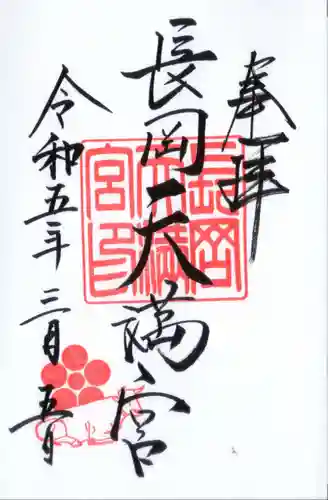 奉拝
長岡天満宮
長岡天満宮印
令和五年三月五日